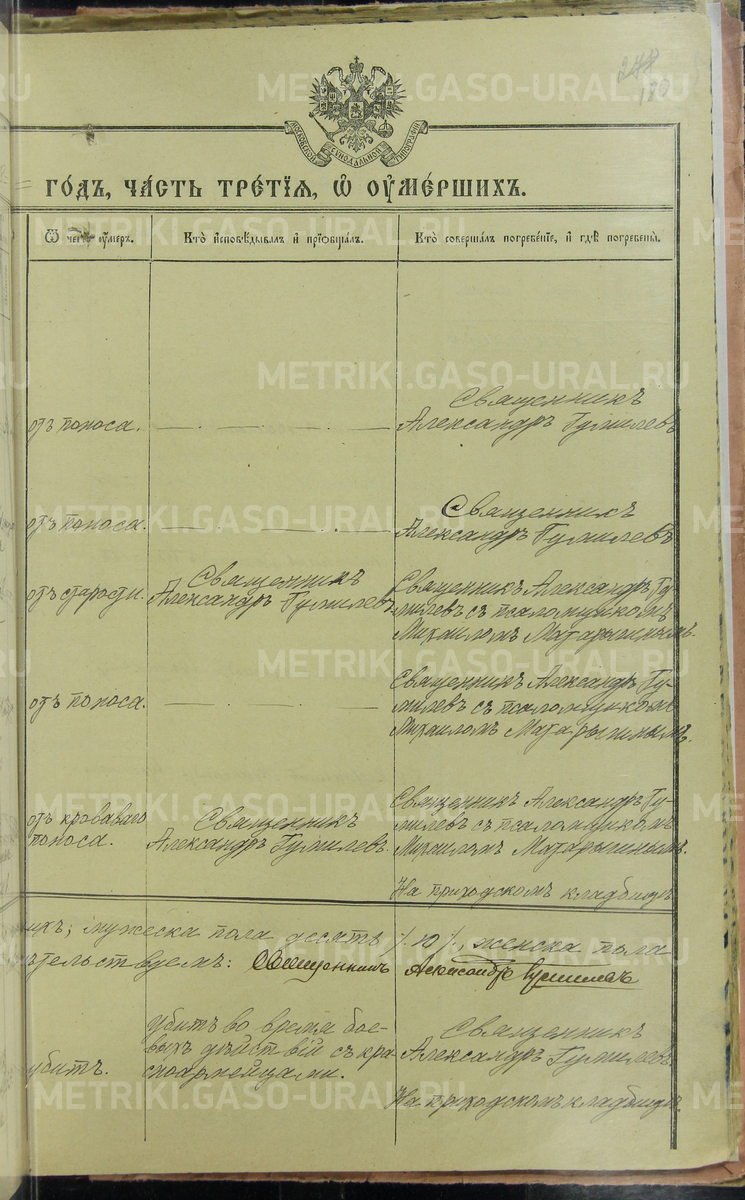 180
МОСКОВСКОЙ СѴНОДАЛЬНОЙ ТИПОГРАФІИ
ГОДЪ, ЧАСТЬ ТРЕТІЯ, Ѡ ОУМЕРШИХЪ.
Ѿ чегѡ оумеръ.
Кто исповѣдывалъ и пріобщалъ.
Кто совершалъ погребеніе, и гдѣ погребены.
отъ поноса.
Священникъ
Александръ Гумилевъ
отъ поноса.
Священникъ
Александръ Гумилевъ
отъ старости.
Священникъ
Александръ Гумилевъ
Священникъ Александръ Гу-
милевъ съ псаломщикомъ
Михаиломъ Матарыгинымъ.
отъ поноса.
Священникъ Александръ Гу-
милевъ съ псаломщикомъ
Михаиломъ Матарыгинымъ.
отъ кроваваго
поноса.
Священникъ
Александръ Гумилевъ.
Священникъ Александръ Гу-
милевъ съ псаломщикомъ
Михаиломъ Матарыгинымъ.
На приходскомъ кладбищѣ
ихъ; мужеска пола десять /.10/., женска пола
тельствуемъ: Священникъ Александръ Гумилевъ
убитъ.
Убитъ во время бое-
выхъ дѣйствій съ кра
сноармейцами.
Священникъ
Александръ Гумилевъ
На приходскомъ кладбищѣ.
METRIKI.GASO-URAL.RU